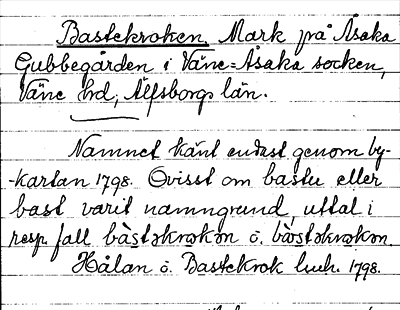 Bastekroken, Mark på Åsaka
Gubbegården i Väne-Åsaka socken,
Väne hd, Älfsborgs län.
Namnet känt endast genom by-
-kartan 1798. Ovisst om bastu eller
bast varit namngrund, uttal i
resp. fall bàstəkrokən o.
Hålan o. Bastekrok 1798.